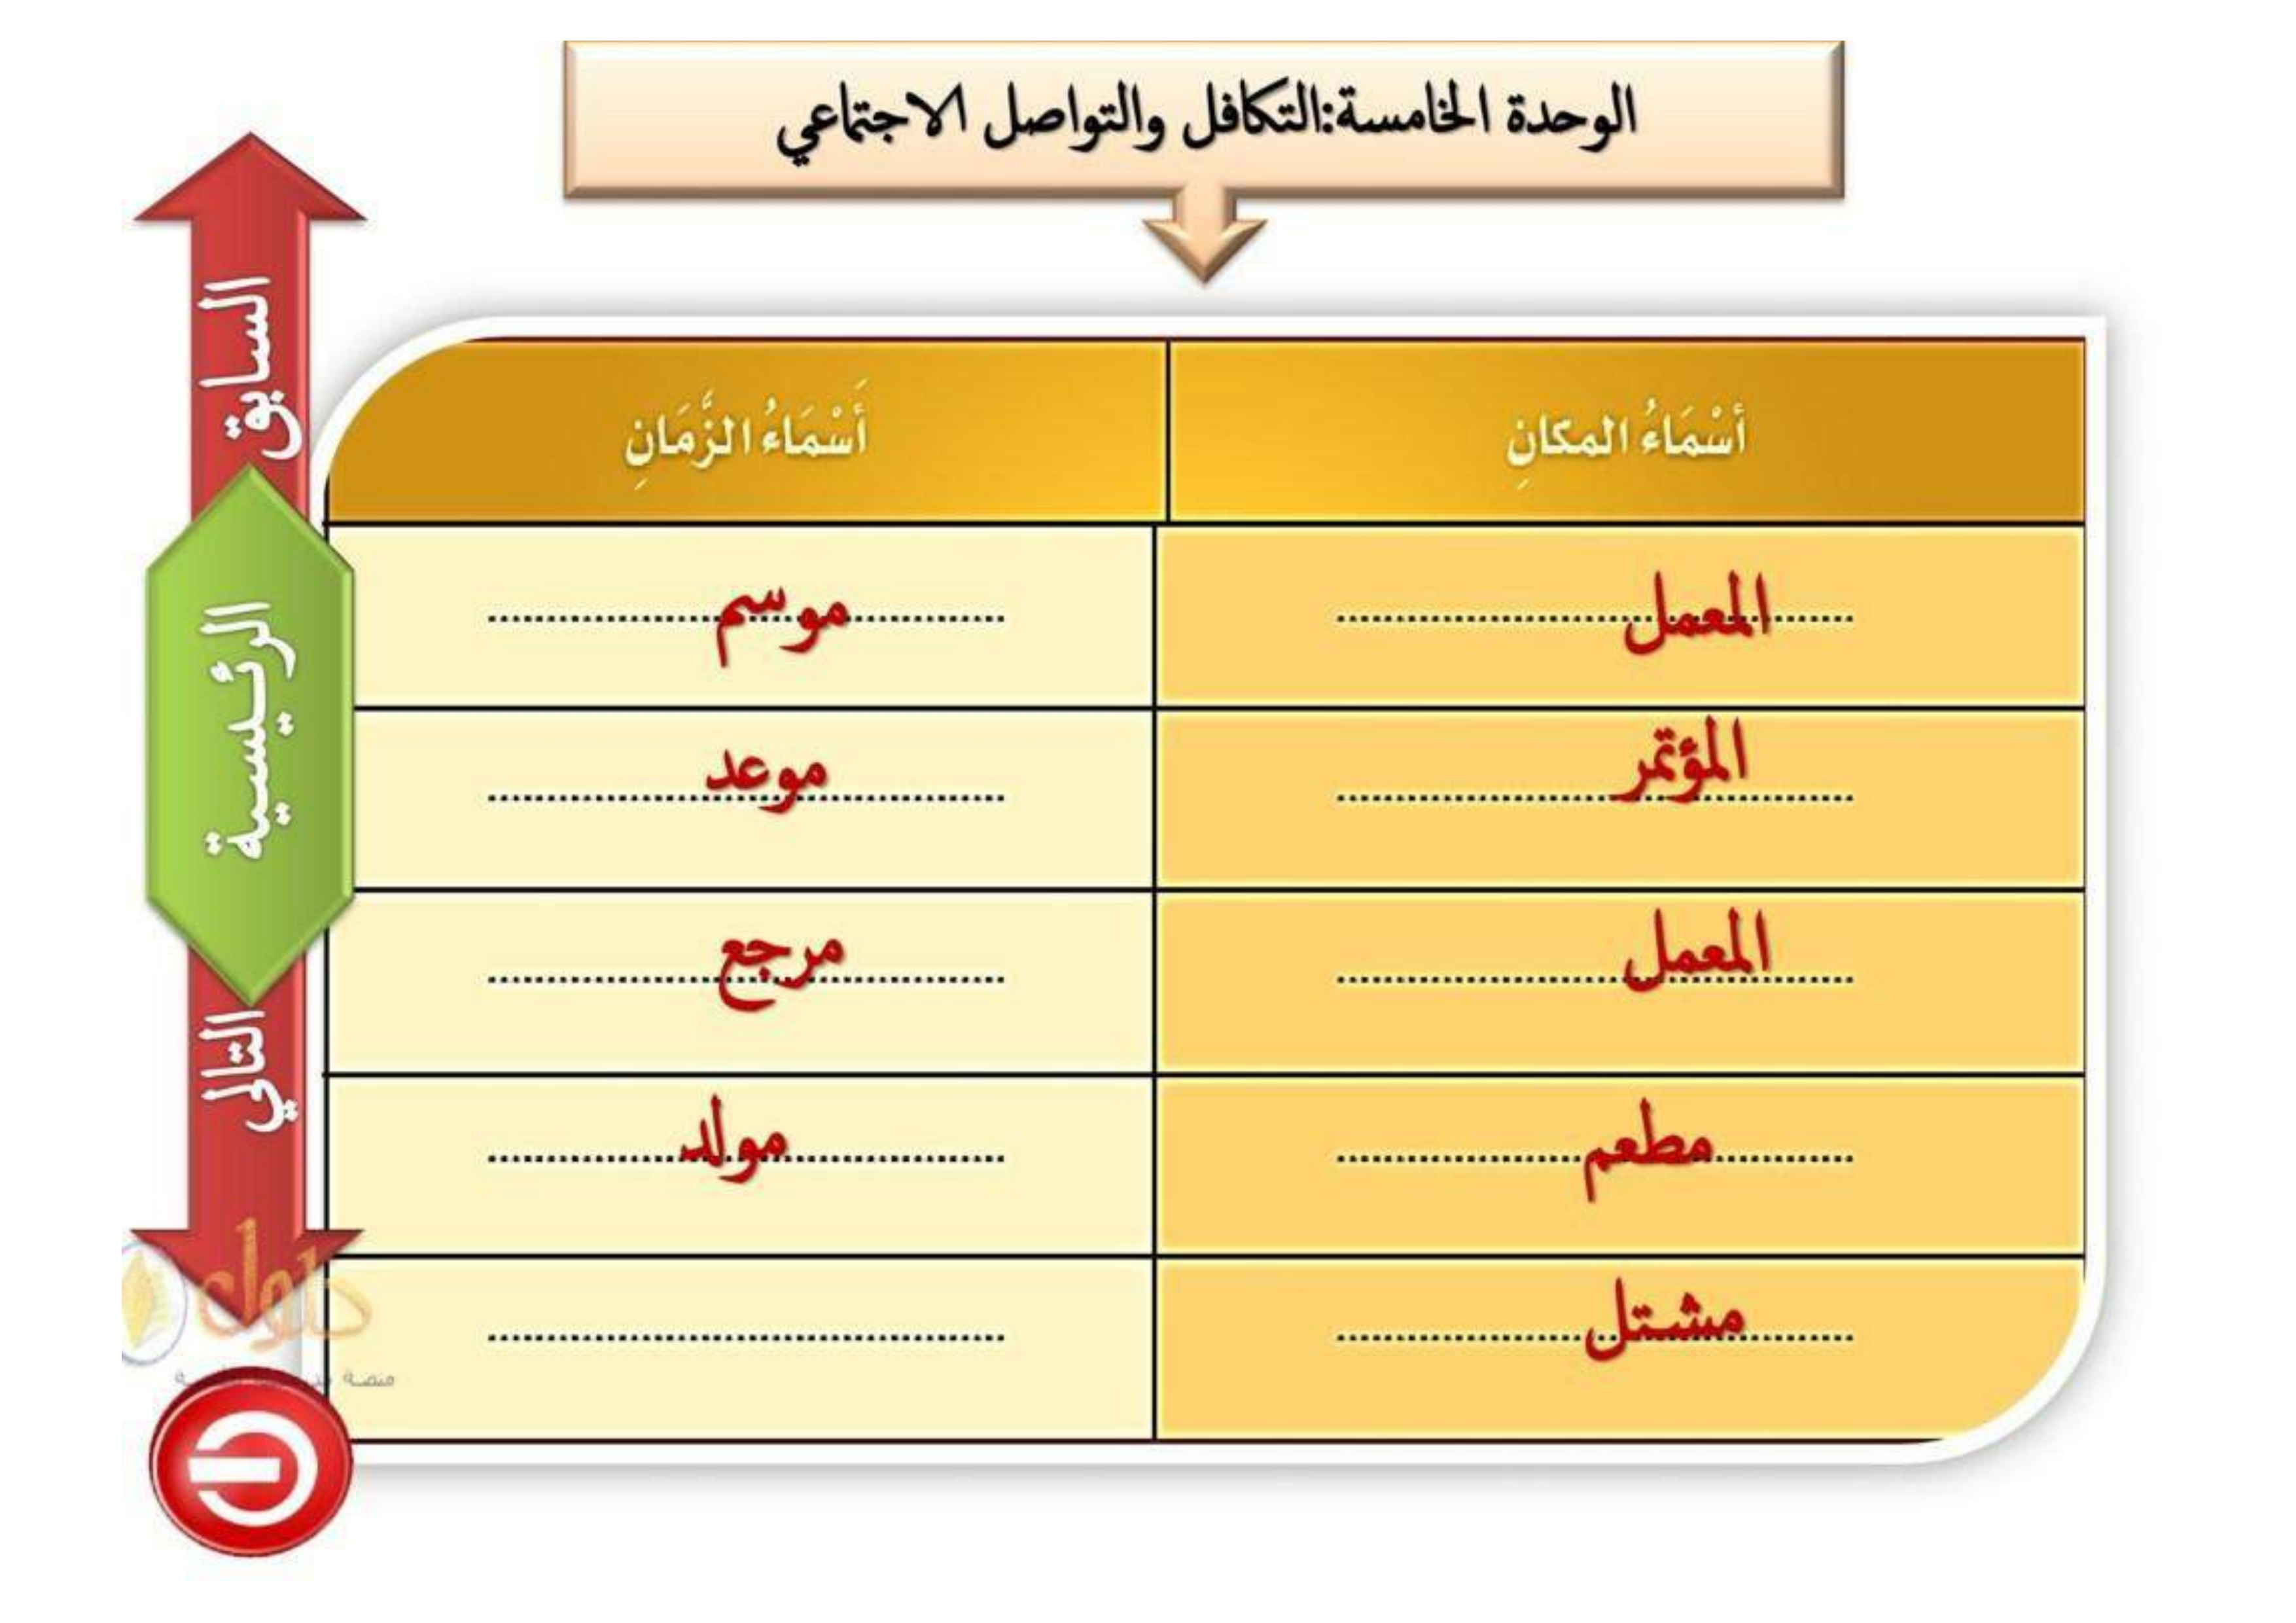 الوحدة الخامسة:التكافل والتواصل الاجتماعي
أسْمَاءُ المكانِ أَسْمَاءُ الزَّمَانِ
المعمل موسم
المؤتمر موعد
المعمل مرجع
مطعم مولد
مشتل
السابق
الرئيسية
التالي
حلول
منصة